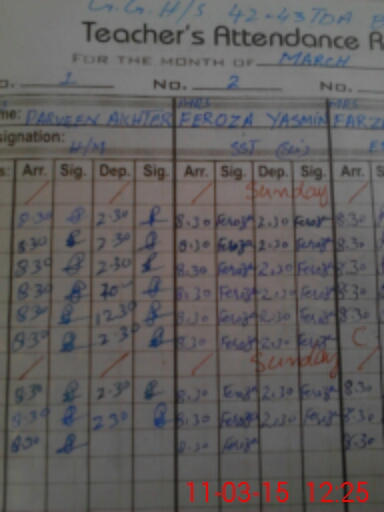 G.G.H/S 42-43 TDA
Teacher's Attendance R
FOR THE MONTH OF MARCH
o. 1 No. 2 No.
me: PARVEEN AKHTER MRS FEROZA YASMIN MRS FARZ
signation: H/M SST (Sci)
s: Arr. Sig. Dep. Sig. Arr. Sig. Dep. Sig. Arr. S
Sunday
8.30 2.30 8.30 Feroza 2.30 Feroza 8.30
8.30 2.30 8.30 Feroza 2.30 Feroza 8.30
8.30 2.30 8.30 Feroza 2.30 Feroza 8.30
8.30 8.30 Feroza 2.30 Feroza 8.30
8.30 12.30 8.30 Feroza 2.30 Feroza 8.30
8.30 2.30 8.30 Feroza 2.30 Feroza C
Sunday
8.30 2.30 8.30 Feroza 2.30 Feroza 8.30
8.30 2.30 8.30 Feroza 2.30 Feroza 8.30
8.30 8.30 Feroza 8.30
11-03-15 12:25